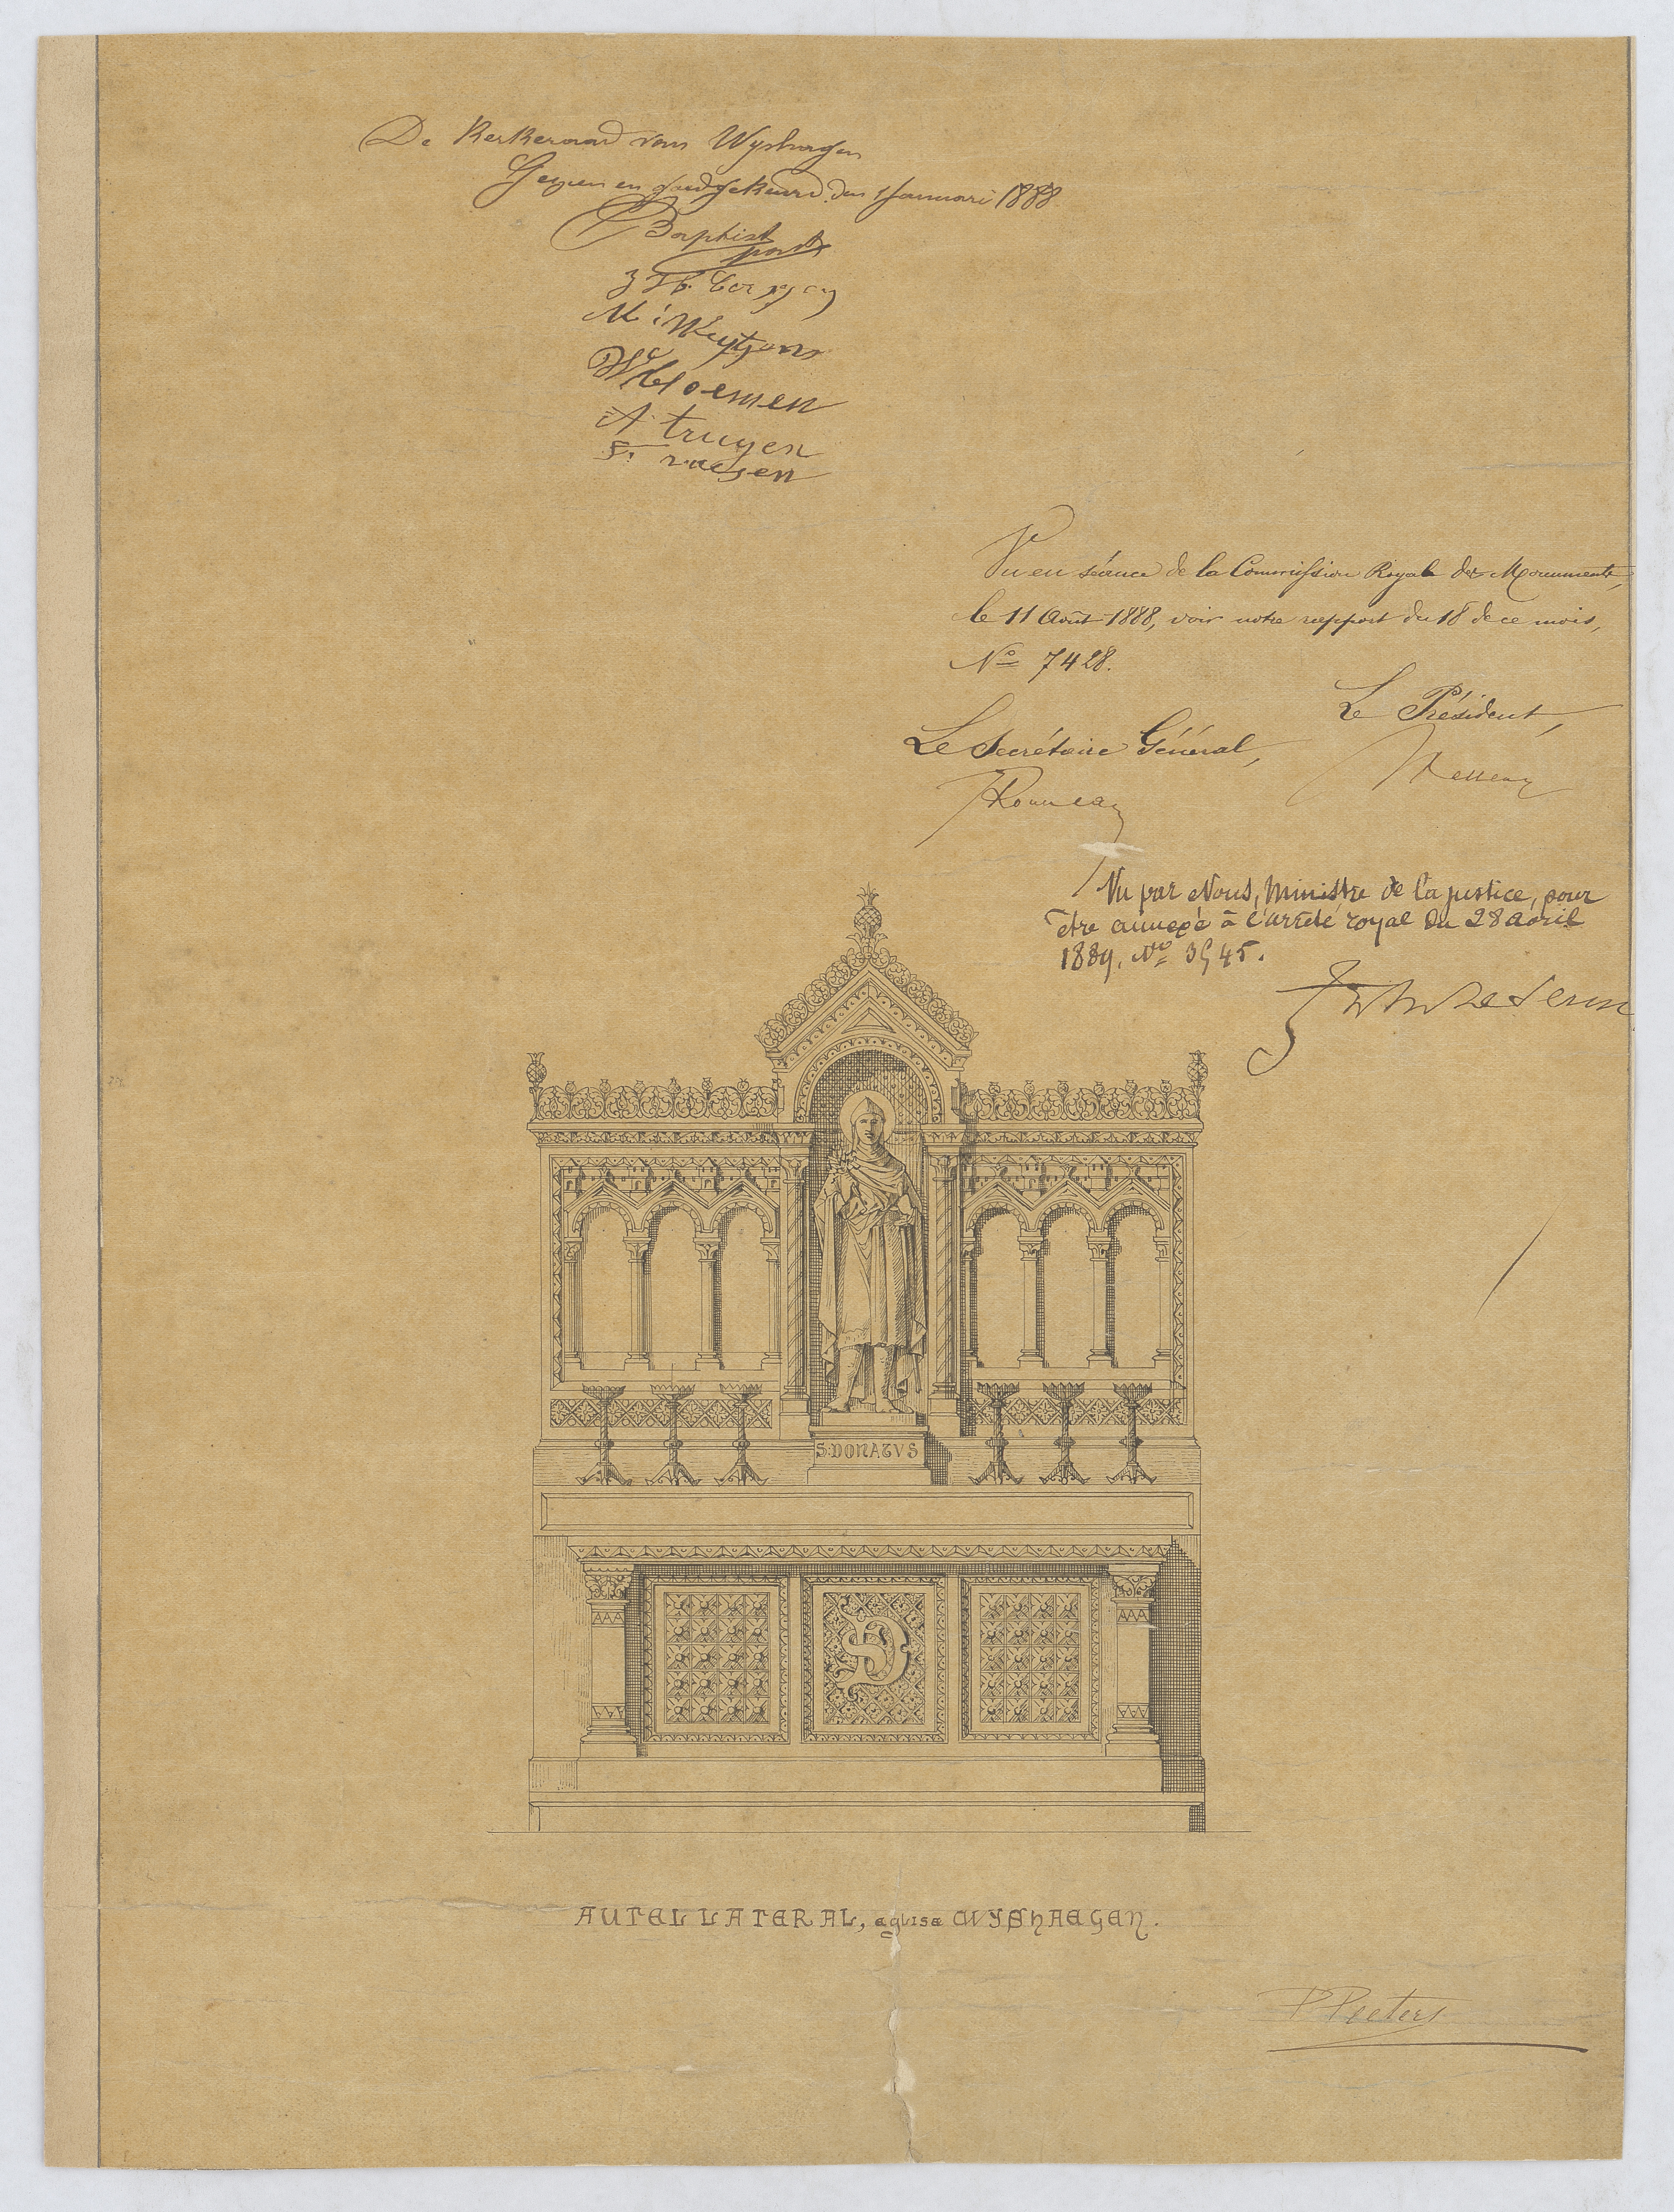 De Kerkeraad van Wyshagen
Gezien en goedgekeurd den 1 Januari 1888
Baptist
M: Weytjens
Bloemen
A truyen
raesen
Vu en séance de la Commission Royale des Monuments,
le 11 Août 1888, voir notre rapport du 18 de ce mois,
No 7428.
Le Président,
Le Secrétaire Général,
Rousseau
Vu par Nous, Ministre de la justice, pour
être annexé à l'arrêté royal du 28 avril
1889, No
S: DONATVS
D
AUTEL LATERAL, eglise WYSHAEGEN.
P Peeters